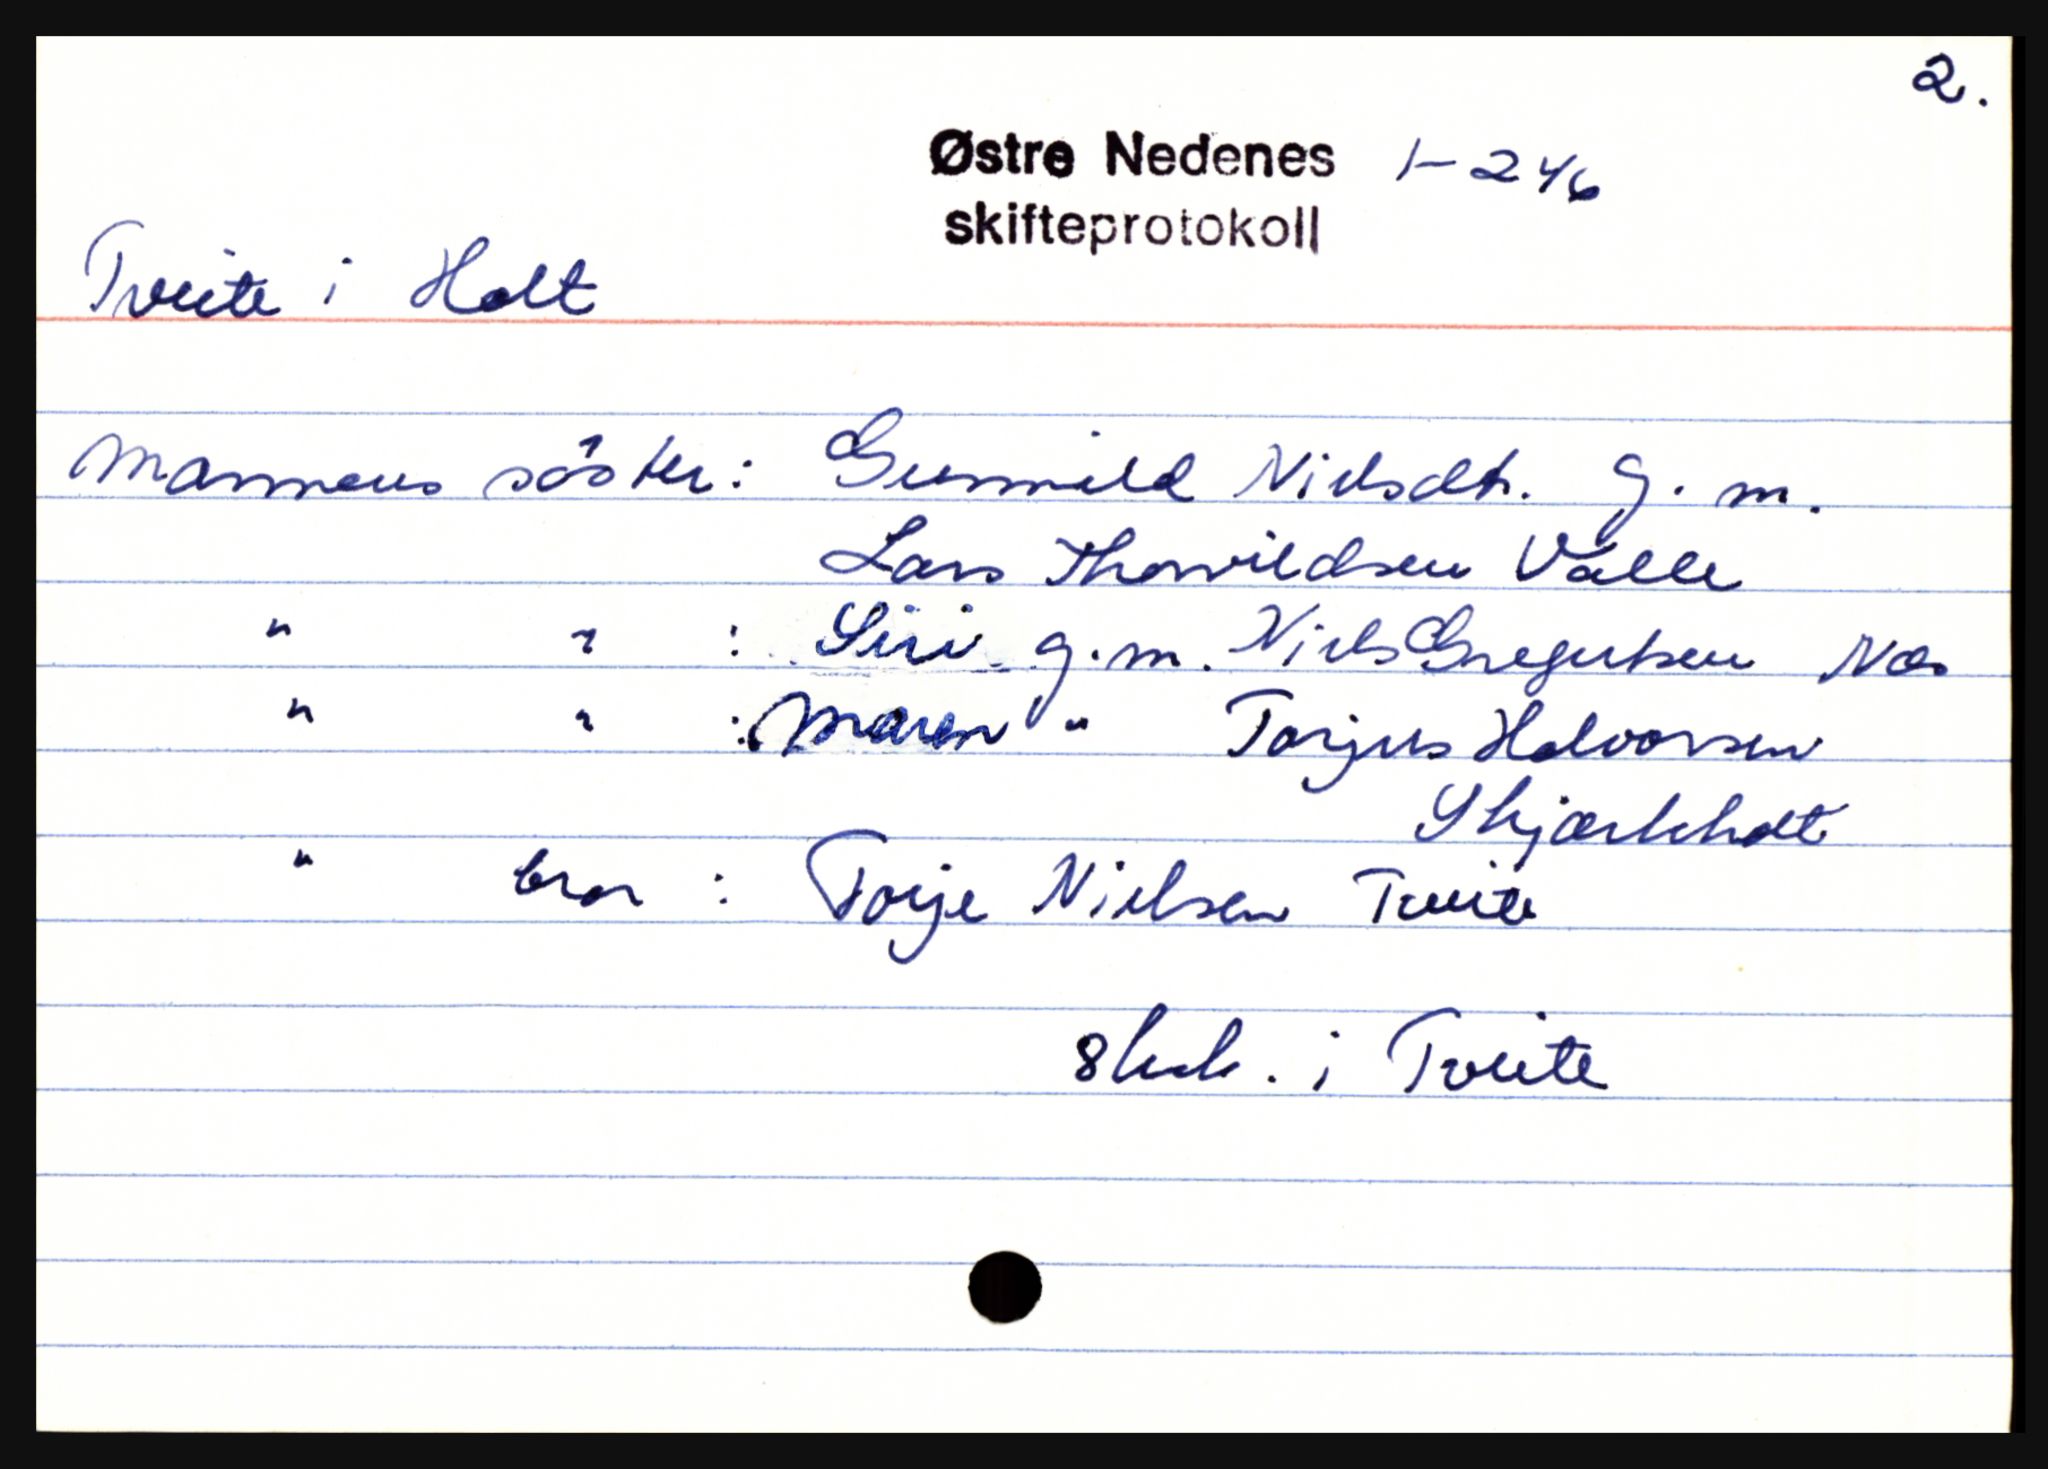 2.
Østre Nedenes 1-246
skifteprotokoll
Tveite i Holt
Mannens söster: Gunnild Nielsdtr. g.m.
Lars Thorvildsen Valle
" " : Siri g.m. Niels Gregertsen Næs
" " : Maren " Torjus Halvorsen
Skjærkholt
" bror : Torje Nielsen Tveite
8 . i Tveite